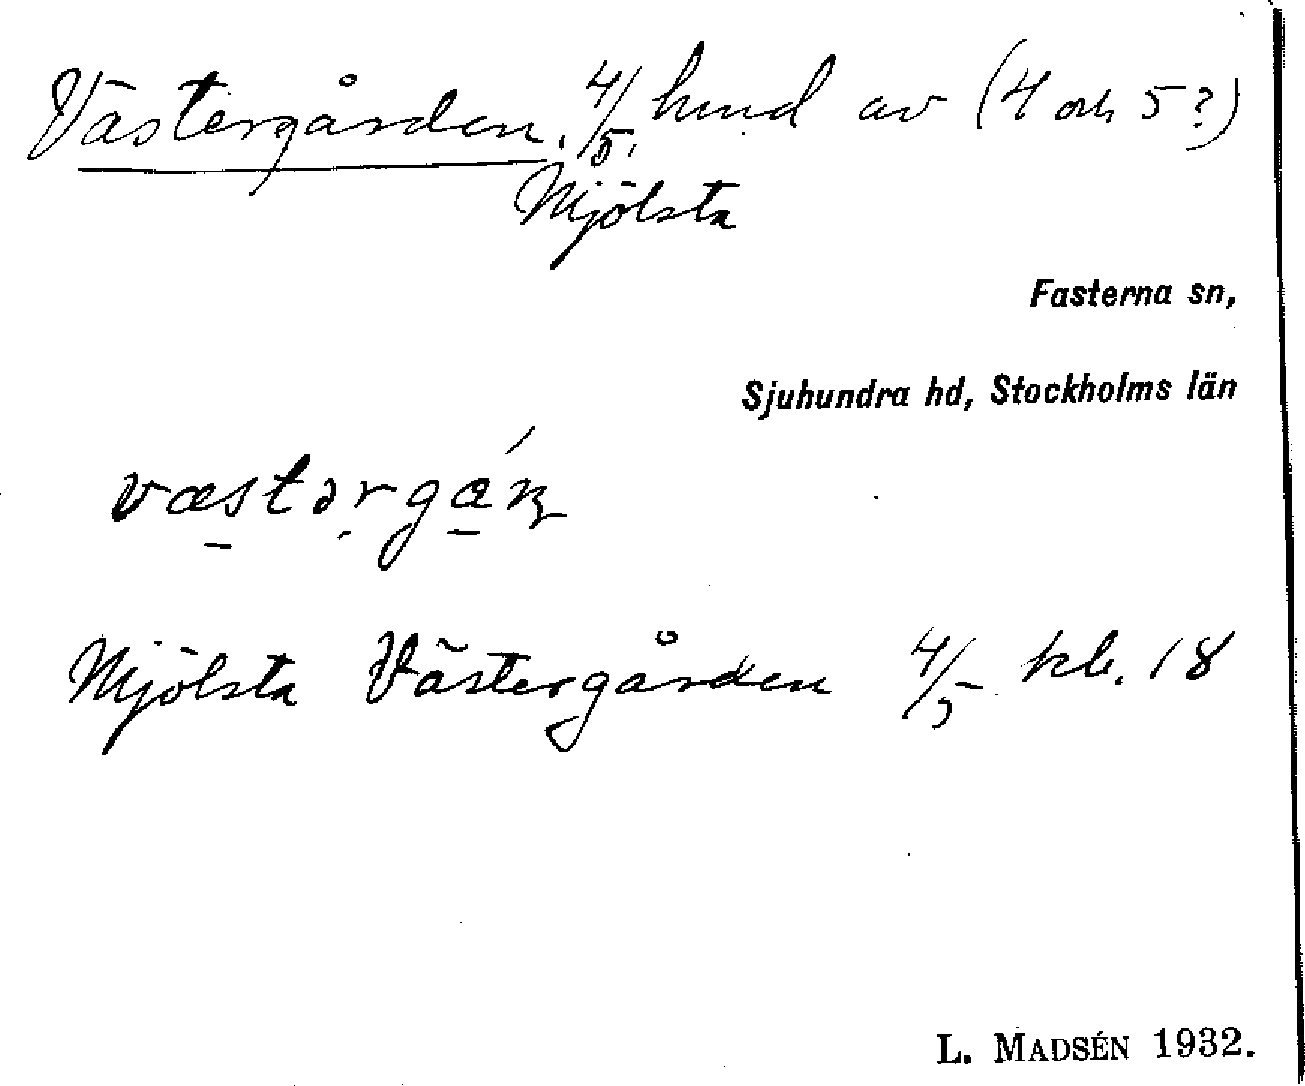 Västergården. 4/5. hmd av (4 och 5?)
Mjölsta
Fasterna sn,
Sjuhundra hd, Stockholms län
væstərgán
Mjölsta Västergården 4/5 kb. 18
L. MADSÉN 1932.